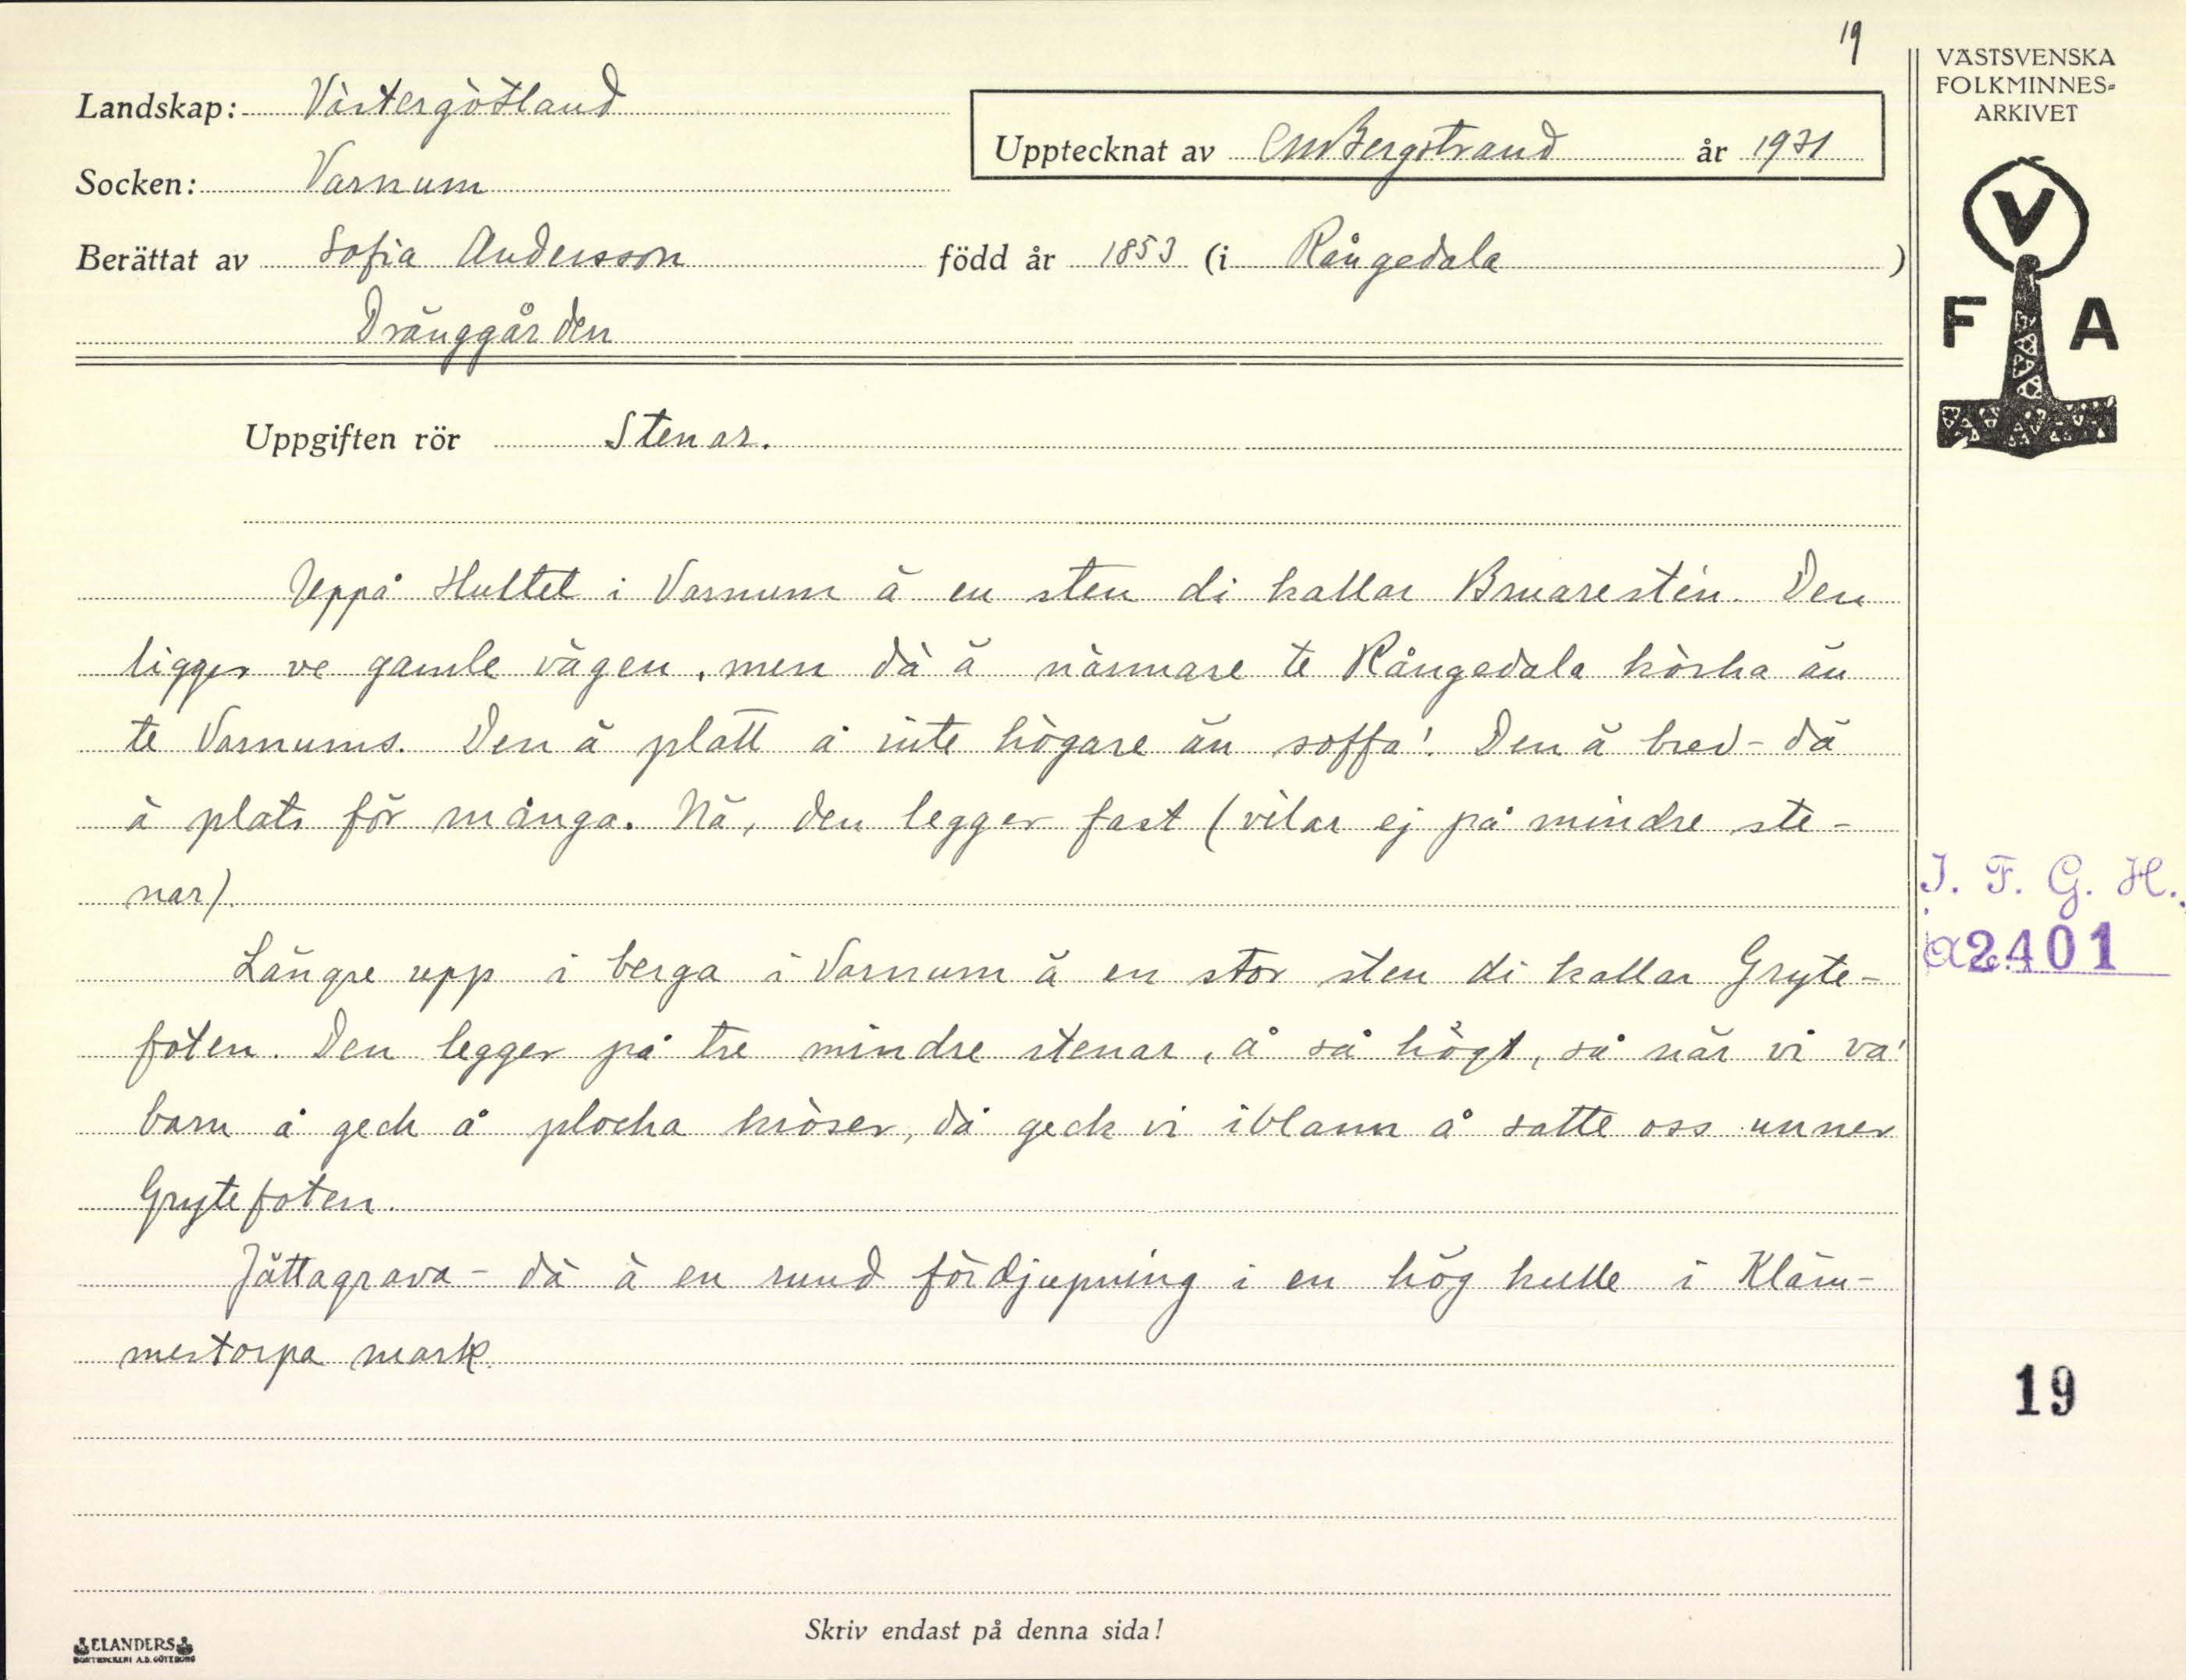 19
VÄSTSVENSKA
FOLKMINNES-
ARKIVET
Landskap: Västergötland
Upptecknat av CM Bergstrand år 1931
Socken: Varnum
Berättat av Sofia Andersson född år 1853 (i Rångedala )
Dränggården
V
F A
Uppgiften rör Stenar.
Uppå Hultet i Varnum ä en sten di kallar Bruaresten. Den
ligger ve gamle vägen, men dä ä närmare te Rångedala körka än
te Varnums. Den ä platt å inte högare än soffa'. Den ä bred - dä
ä plats för många. Nä, den legger fast (vilar ej på mindre ste-
nar).
Längre upp i berga i Varnum ä en stor sten di kallar Gryte-
foten. Den legger på tre mindre stenar, å så högt, så när vi va'
barn å geck å plocka kröser, då geck vi iblann å satte oss unner
Grytefoten.
Jättagrava - dä ä en rund fördjupning i en hög kulle i Kläm-
mestorpa mark.
I. F. G. H.
a2401
19
Skriv endast på denna sida!
ELANDERS
BOKTRYCKERI A.B. GÖTEBORG